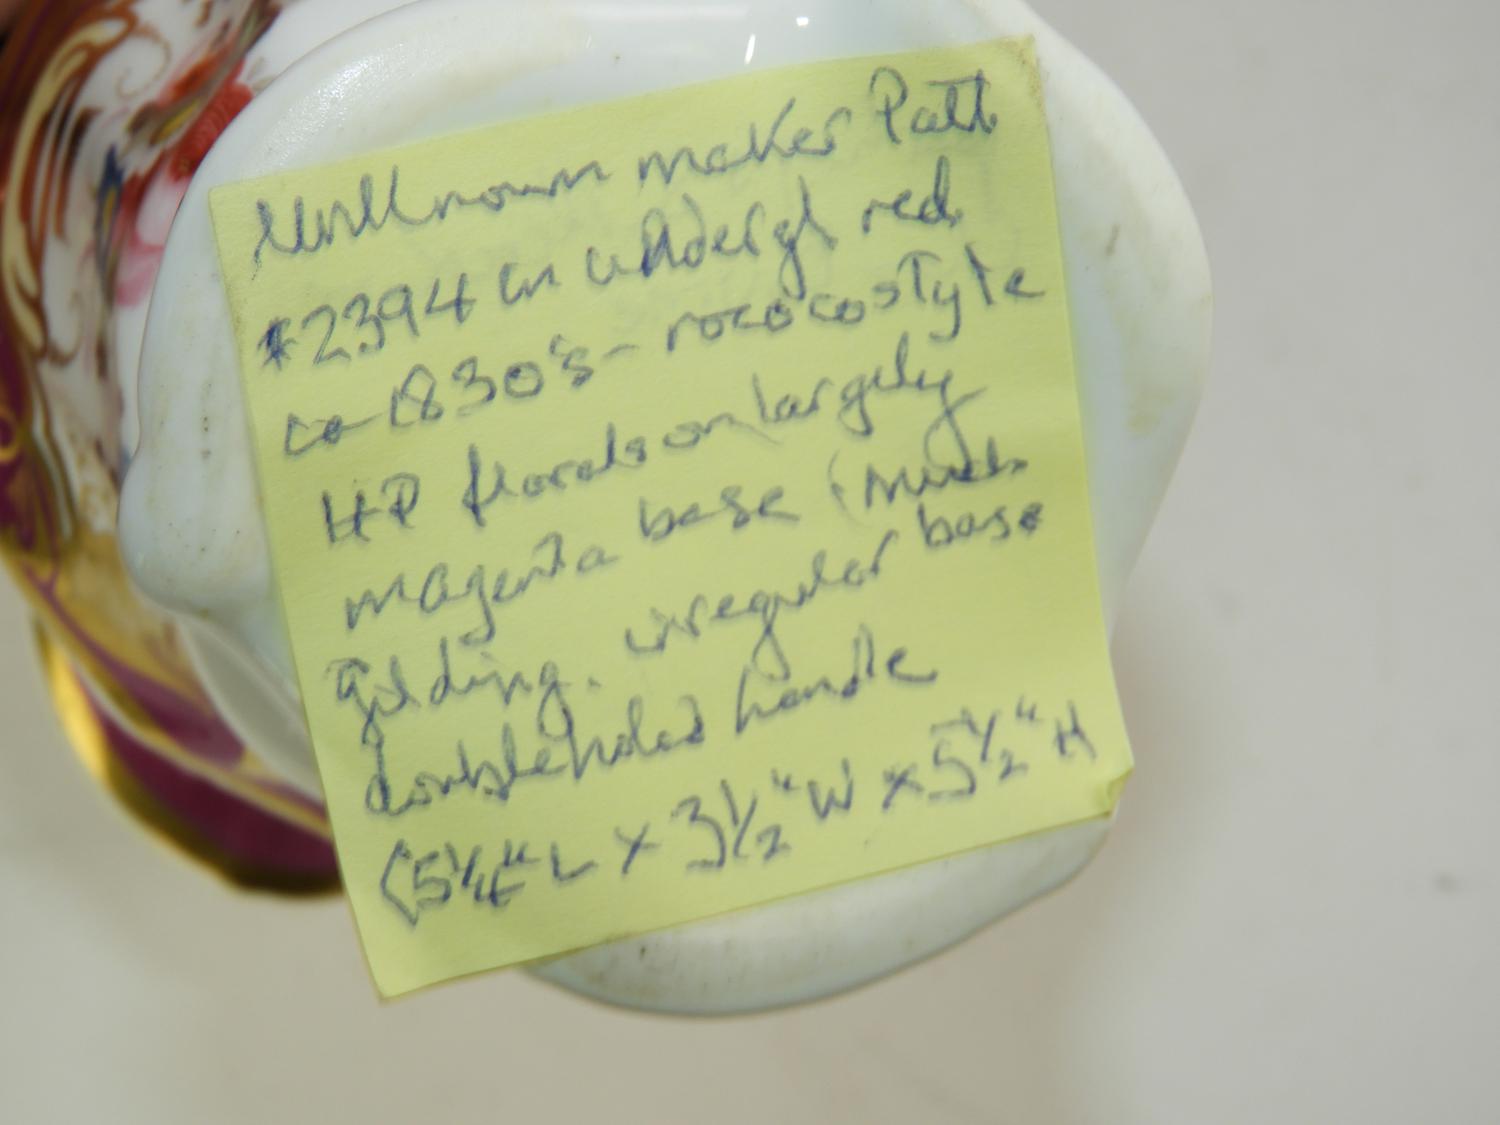 Unknown maker Patt
#2394 in undergl red
ca 1830's - rococo style
HP florals on largely
magenta base (much
gilding. irregular base
double holed handle
(5 1/4" L x 3 1/2" W x 5 1/2" H